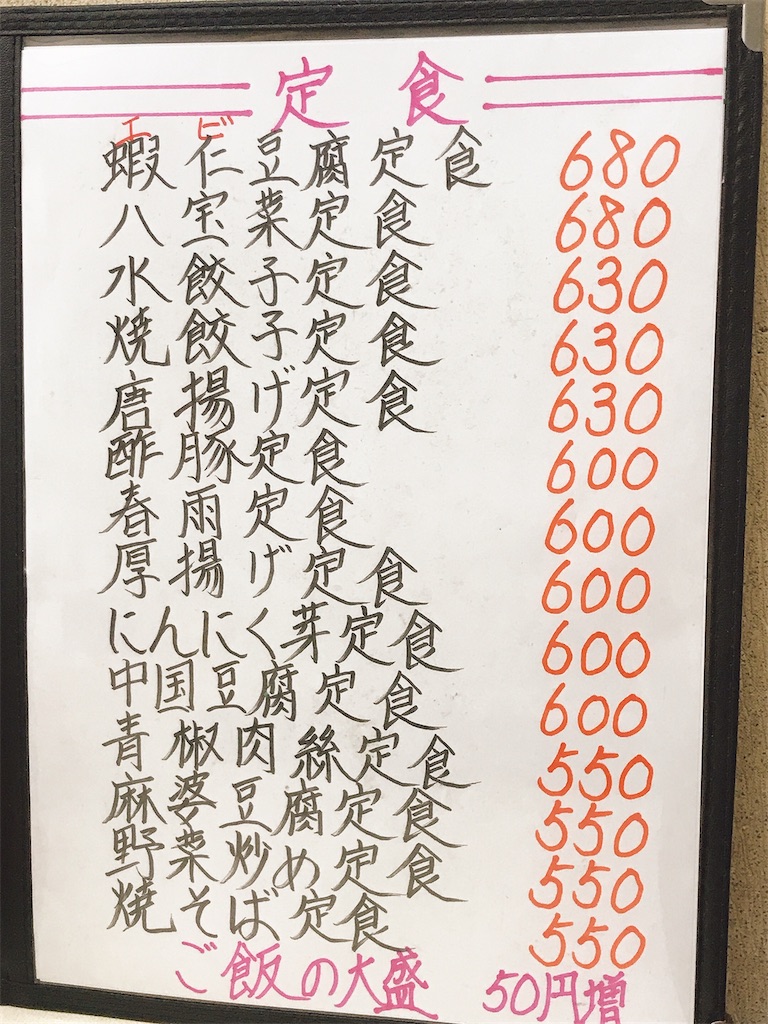 定食
エビ
蝦仁豆腐定食 680
八宝菜定食 680
水餃子定食 630
焼餃子定食 630
唐揚げ定食 630
酢豚定食 600
春雨定食 600
厚揚げ定食 600
にんにく芽定食 600
中国豆腐定食 600
青椒肉絲定食 550
麻婆豆腐定食 550
野菜炒め定食 550
焼そば定食 550
ご飯の大盛 50円増